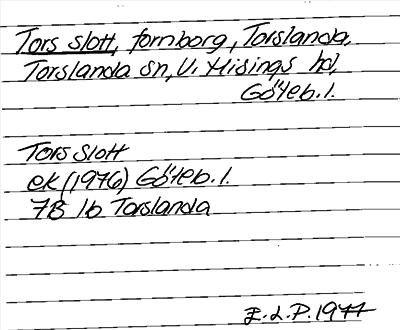 Tors slott, fornborg, Torslanda,
Torslanda sn, V. Hisings hd,
Göteb. l.
Tors Slott
ek (1976) Göteb. l.
7B 1b Torslanda
E.L.P. 1977